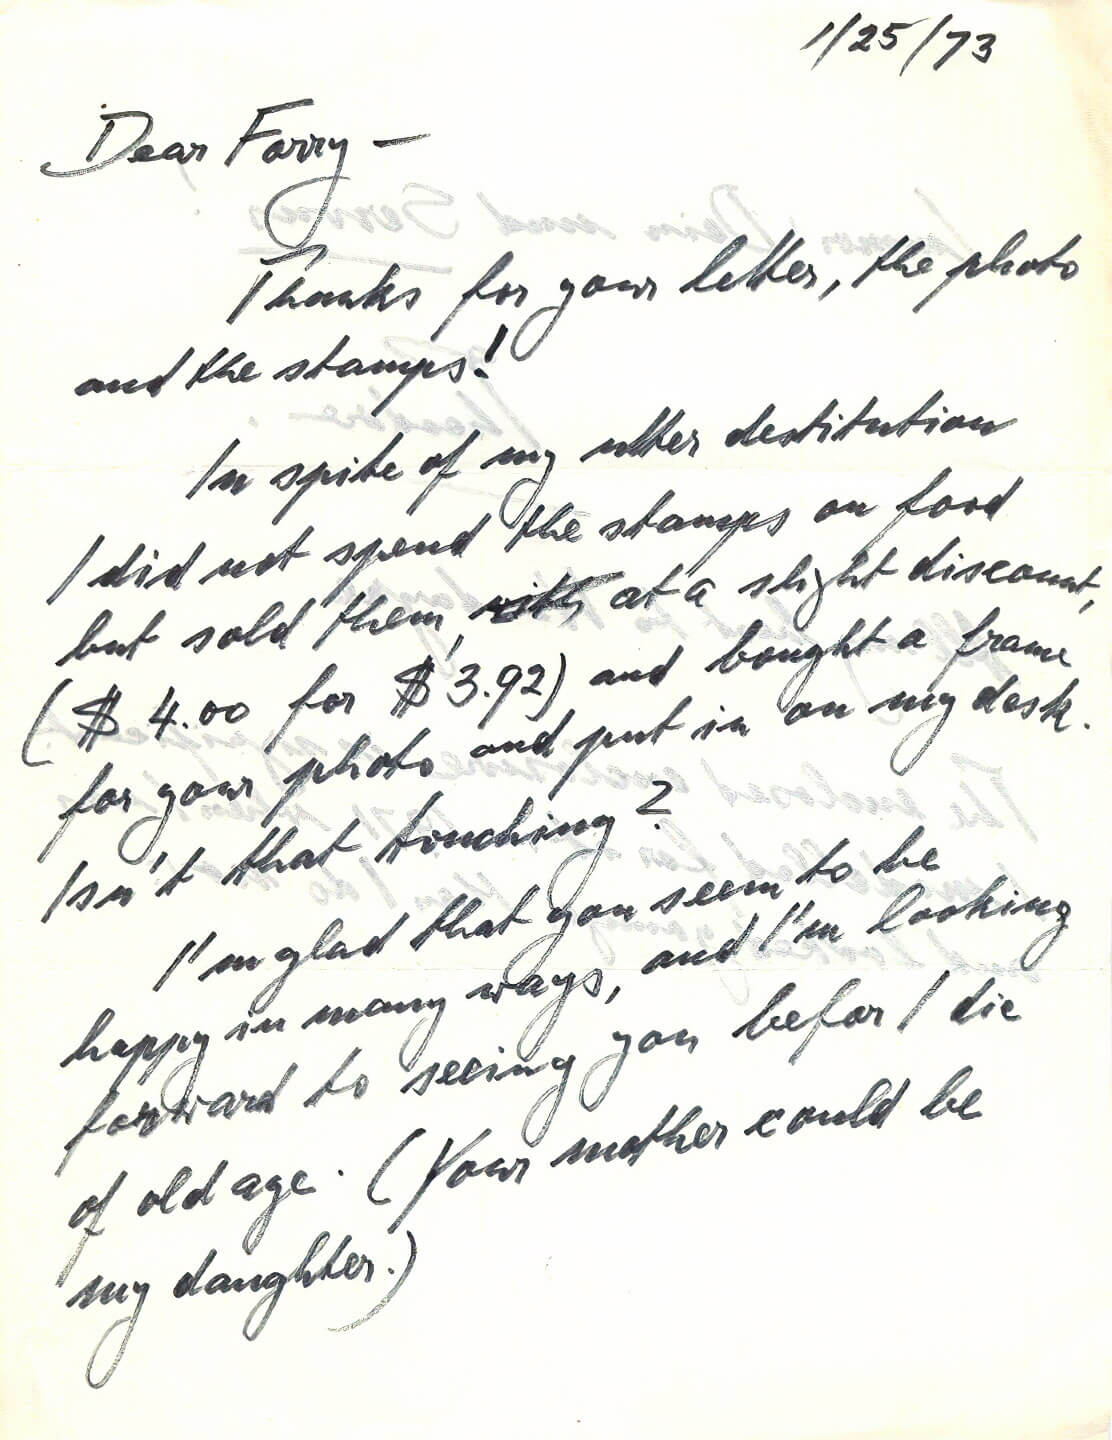 1/25/73
Dear Forry —
Thanks for your letter, the photo
and the stamps!
In spite of my utter destitution
I did not spend the stamps on food
but sold them, with at a slight discount,
($ 4.00 for $ 3.92) and bought a frame
for your photo and put in on my desk.
Isn't that touching?
I'm glad that you seem to be
happy in many ways, and I'm looking
forward to seeing you befor I die
of old age. (Your mother could be
my daughter.)